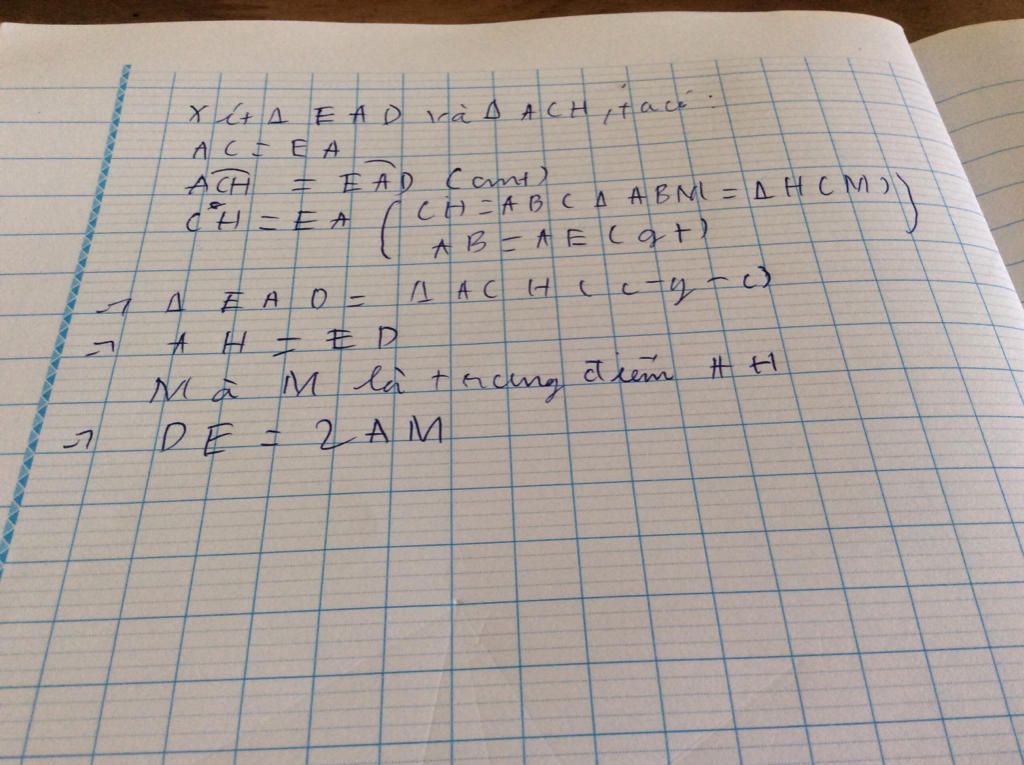 Xét Δ EAD và Δ ACH, ta có:
AC = EA
ACH = EAD (cmt)
CH = EA ( CH = AB ( Δ ABM = Δ HCM )
AB = AE (gt) )
→ Δ EAD = Δ ACH ( c-g-c)
→ AH = ED
Mà M là trung điểm AH
→ DE = 2AM